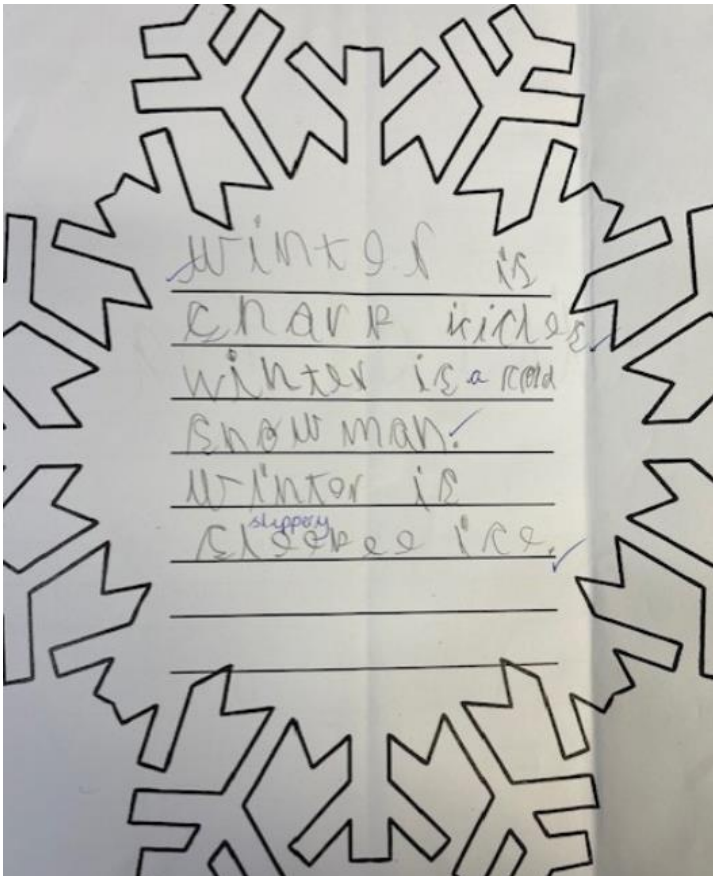 winter is
charp icicles
winter is a cold
snowman.
winter is
slippery
sleepee ice.